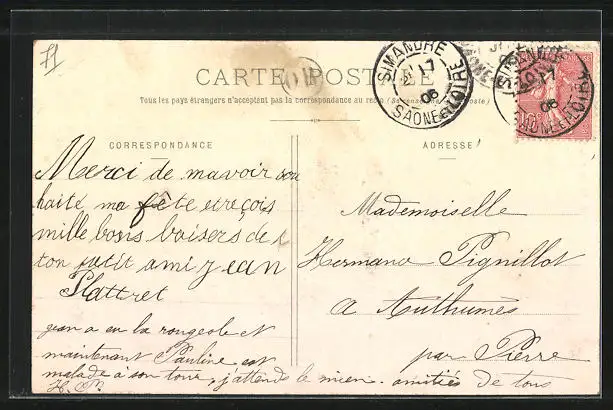 CARTE POSTALE
Tous les pays étrangers n'acceptent pas la correspondance au recto
CORRESPONDANCE
Merci de mavoir sou
haité ma fête et reçois
mille bons baisers de
ton petit ami jean
Plattret
jean a eu la rougeole et
maintenant Pauline est
malade à son tour, j'attends le mien. amitiés de tous
H. P.
ADRESSE
Mademoiselle
Hermance Pignillot
a Authumes
par Pierre
SIMANDRE
17
06
SAÔNE-ET-LOIRE
10c